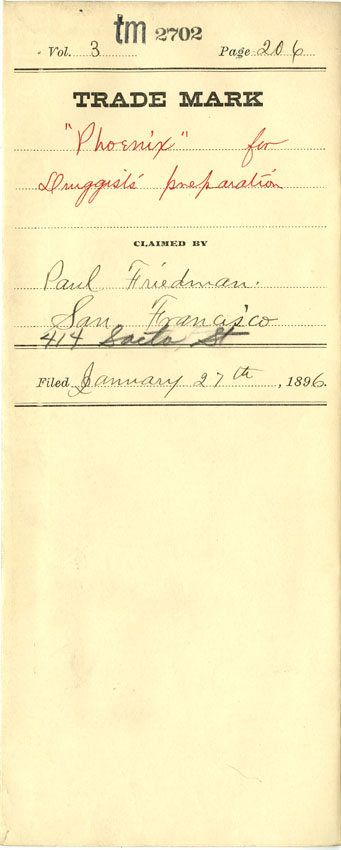 tm 2702
Vol. 3 Page 206
TRADE MARK
"Phoenix" for
Druggists' preparation
CLAIMED BY
Paul Friedman.
San Francisco
414 Sacto St
Filed January 27th, 1896.